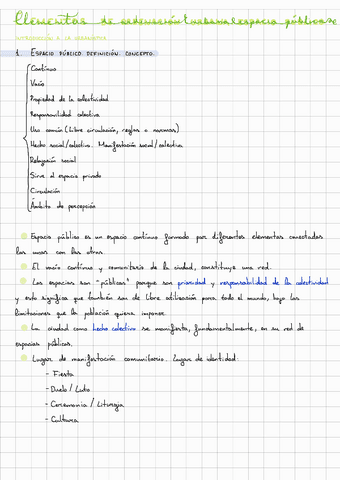 Elementos de ordenación urbana: espacio público
INTRODUCCIÓN A LA ASIGNATURA
1. ESPACIO PÚBLICO. DEFINICIÓN. CONCEPTO.
Continuo
Vacío
Propiedad de la colectividad
Responsavilidad colectiva
Uso común (libre circulación, reglas o normas)
Hecho social/colectivo. Manifestación social/colectiva
Relación social
Sirve al espacio privado
Circulación
Ámbito de percepción
Espacio público es un espacio continuo formado por diferentes elementos conectados
los unos con los otros.
El vacío continuo y comunitario de la ciudad, constituye una red.
Los espacios son "públicos" porque son prioridad y responsabilidad de la colectividad
y esto significa que también son de libre utilización para todo el mundo, bajo las
limitaciones que la población quiera imponer.
La ciudad como hecho colectivo se manifiesta, fundamentalmente, en su red de
espacios públicos.
Lugar de manifestación comunitario. Lugar de identidad:
- Fiesta
- Duelo / Luto
- Ceremonia / Liturgia
- Cultura